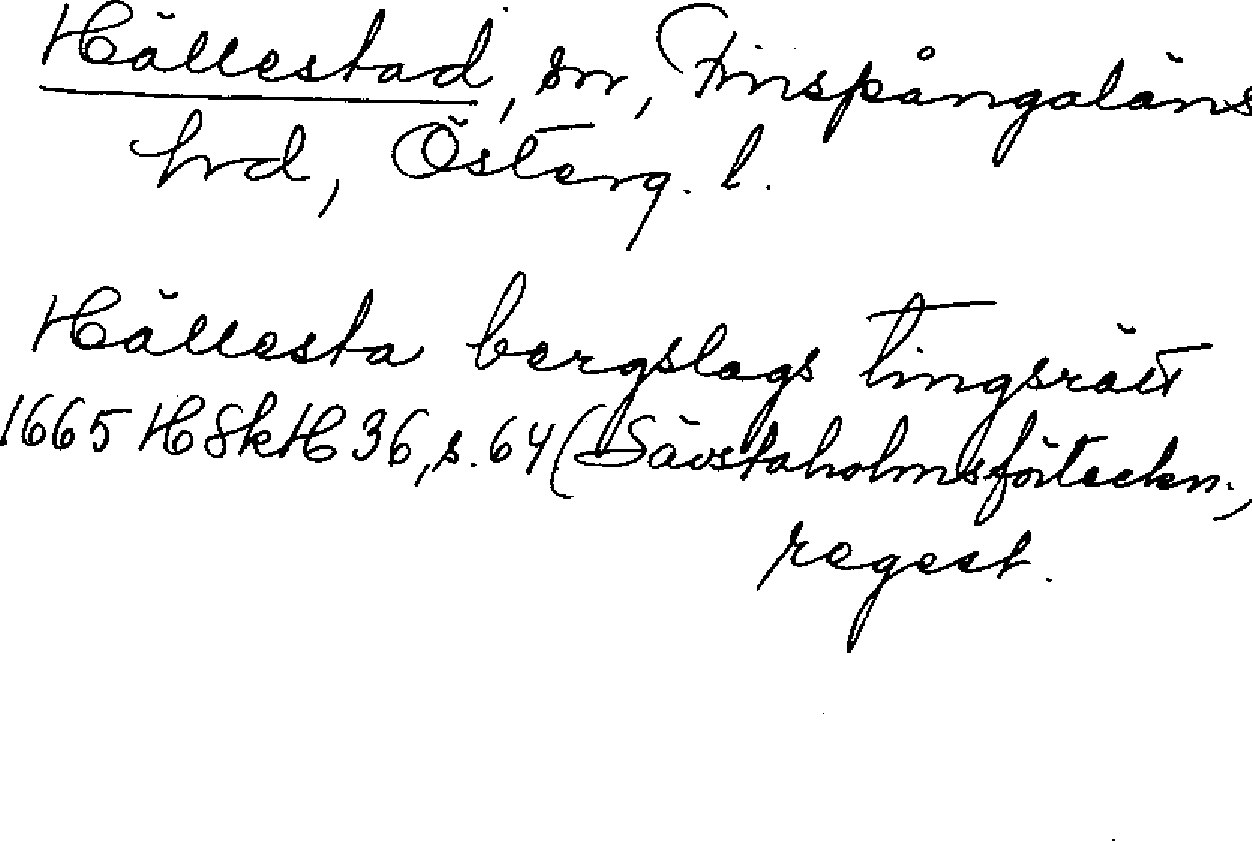 Hällestad, sn, Finspångaläns
hrd, Österg. l.
Hällesta bergslags tingsrätt
1665 HSkH 36, s. 64 (Sävstaholmsförteckn.,
regest.